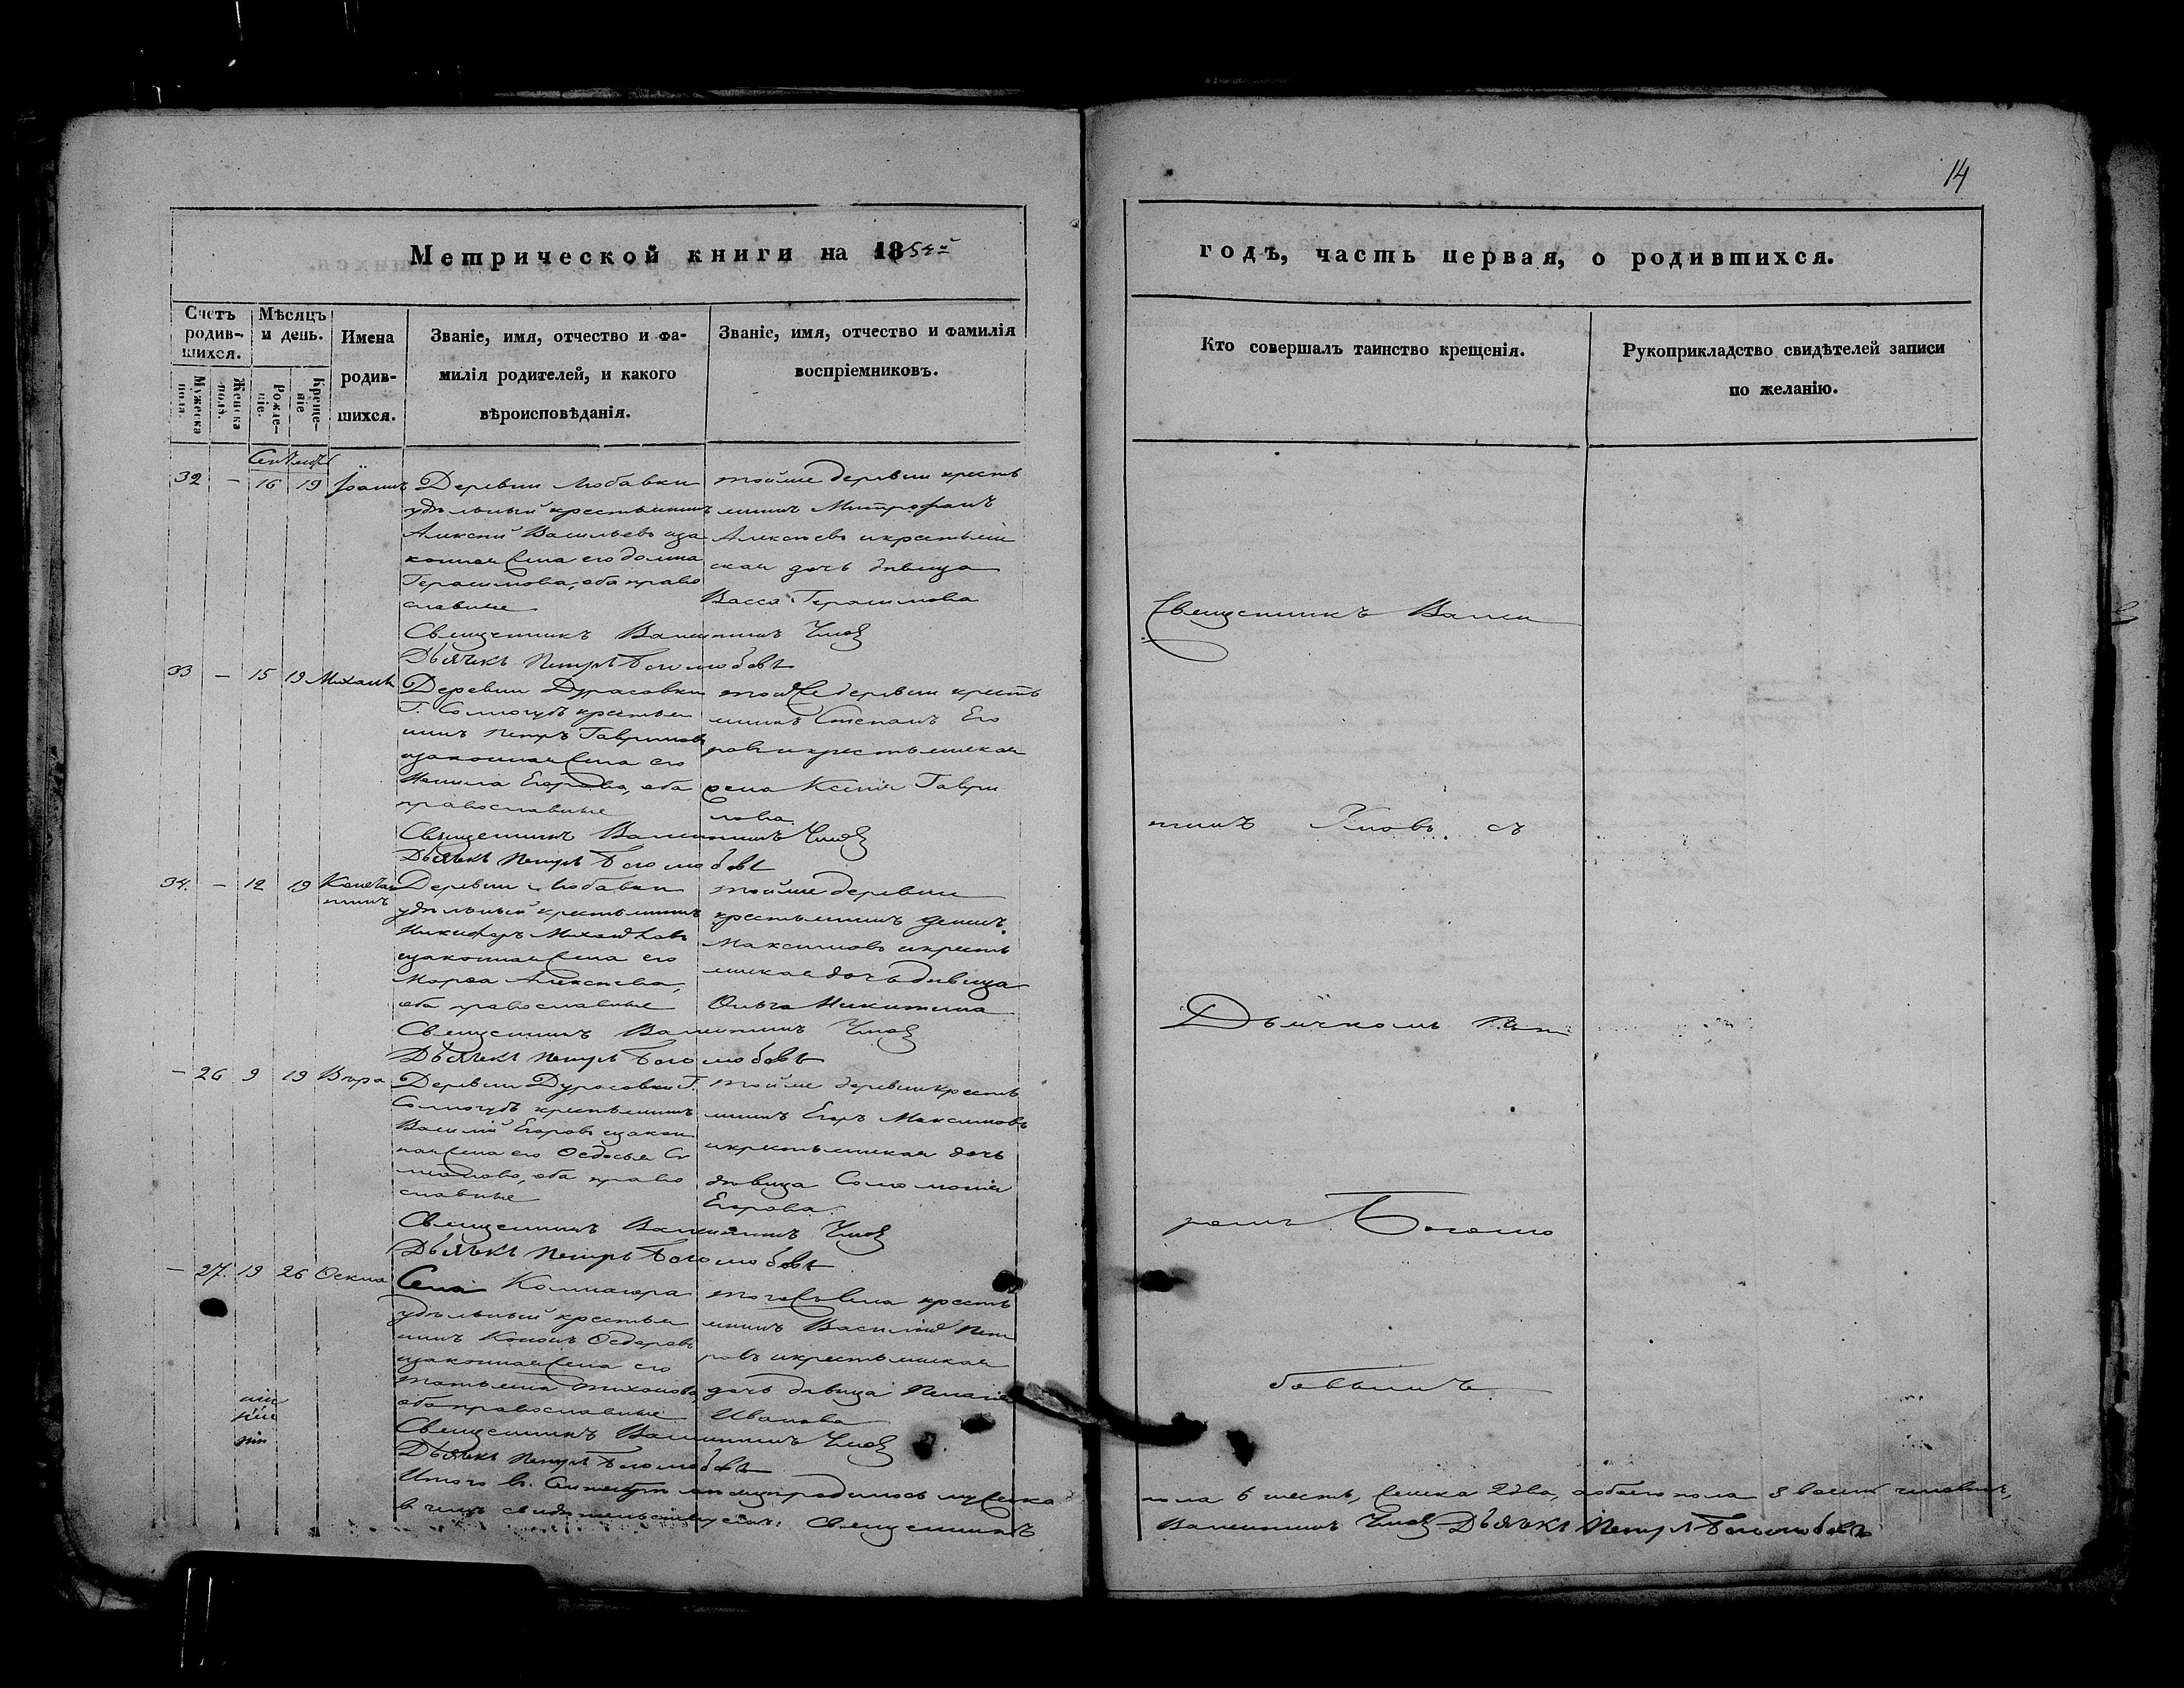 14
Метрической книги на 1854й
годъ, часть первая, о родившихся.
Счетъ родив-шихся.
Мужеска пола.
Женска полъ.
Мѣсяцъ и день.
Рожде-ніе.
Креще-ніе
Имена родив-шихся.
Званіе, имя, отчество и фа-
милія родителей, и какого
вѣроисповѣданія.
Званіе, имя, отчество и фамилія
воспріемниковъ.
Кто совершалъ таинство крещенія.
Рукоприкладство свидѣтелей записи
по желанію.
32 – 16 19 Іоаннъ
Деревни Любавки
удѣльный крестьянинъ
Алексій Васильевъ иза
конная жена его Домна
Герасимова, оба право
славные
тойже деревни кресть
янинъ Митрофанъ
Алексѣевъ и крестьян
ская дочь дѣвица
Васса Герасимова
Священникъ Валентинъ
Дьячекъ Петръ Боголюбовъ
33 – 15 19 Михаилъ
Деревни Дурасовки
Г. Сологубъ крестья
нинъ Петръ Гавриловъ
изаконная жена его
Егорова, оба
православные
тойже деревни кресть
янинъ Степанъ Его
ровъ и крестьянская
жена Ксенія Гаври
лова.
Священникъ Валентинъ
Дьячекъ Петръ Боголюбовъ
34. – 12 19
Деревни Любавки
удѣльный крестьянинъ
Никифоръ Михайловъ
изаконная жена его
Марѳа Алексѣева,
оба православные
тойже деревни
крестьянинъ
Максимовъ и кресть
янская дочь дѣвица
Ольга Никитина
Священникъ Валентинъ
Дьячекъ Петръ Боголюбовъ
– 26 9 19 Вѣра
Деревни Дурасовки Г.
Сологубъ крестьянинъ
Василій Егоровъ изакон
ная жена его Ѳедосья
оба право
славные
тойже деревни кресть
янинъ Егоръ Максимовъ
и крестьянская дочь
дѣвица Соломонія
Егорова.
Священникъ Валентинъ
Дьячекъ Петръ Боголюбовъ
– 27. 19 26 Ѳекла
Села
удѣльный крестья
нинъ Кононъ Ѳедоровъ
изаконная жена его
Татьяна Тихонова,
оба православные
тогожъ села кресть
янинъ Василій Пет
ровъ и крестьянская
дочь дѣвица Пелагія
Иванова
Священникъ Валентинъ
Дьячекъ Петръ Боголюбовъ
Итого въ Сентябрѣ родилось мужеска
пола 6 шесть, женска 2 два, обоего пола 8 восемь человѣкъ,
въ чемъ свидѣтельствуемъ: Священникъ
Валентинъ Дьячекъ Петръ Боголюбовъ
Священникъ Вален
тинъ съ
Дьячкомъ Пет
ромъ Боголю
бовымъ